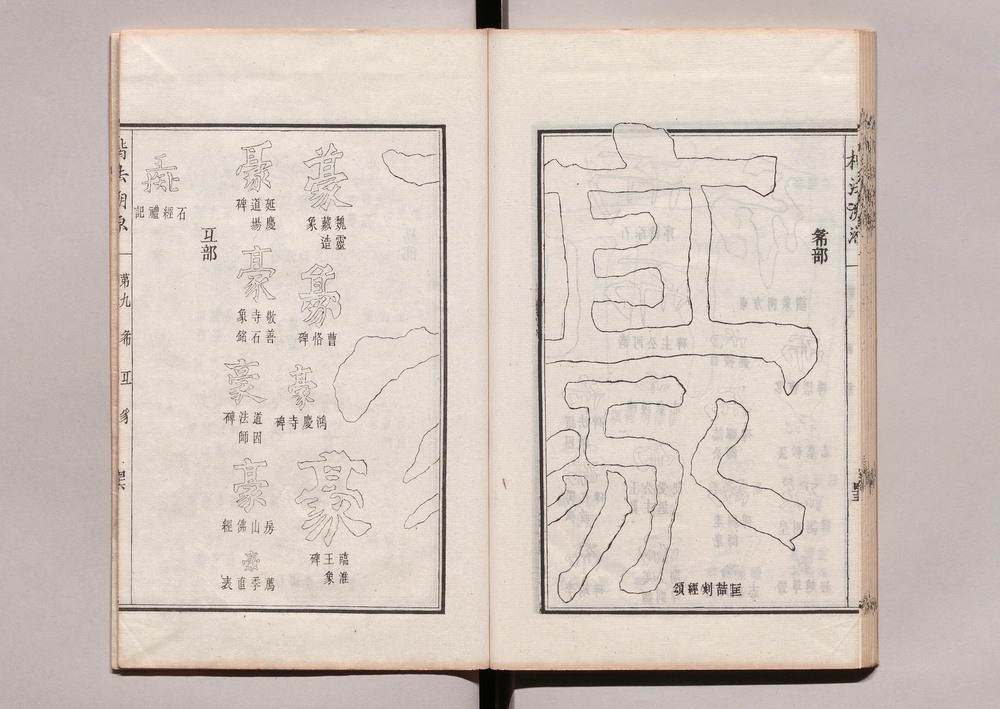 㣇部
豪
匡喆刻經頌
豪
魏靈藏造象
豪
曹恪碑
豪
鴻慶寺碑
豪
臨淮王象碑
豪
延慶道場碑
豪
敬善寺石象銘
豪
道因法師碑
豪
房山佛經
豪
薦季直表
彑部
彘
石經禮記
楷法溯源
第九
㣇
彑